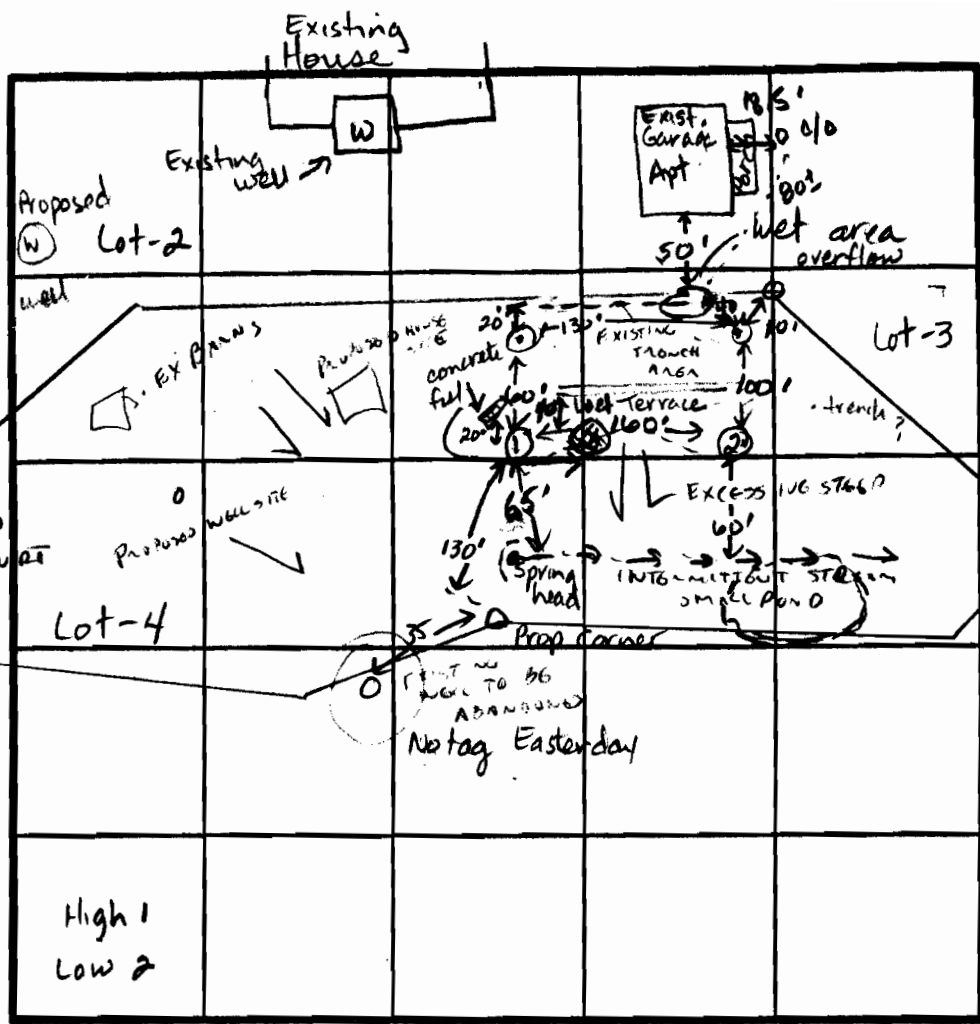 Existing
House
W
Existing
well
Exist.
Garage
Apt
18.5'
80'
Proposed
W
well
Lot-2
50'
Wet area
overflow
Lot-3
EX BARNS
PROPOSED HOUSE
20'
130'
EXISTING
TRENCH
AREA
10'
concrete
100'
100'
Wet
Terrace
160'
20'
1
2
trench ?
EXCESSIVE STEEP
PROPOSED WELL SITE
65'
60'
130'
Spring
head
INTERMITTENT STREAM
SMALL POND
Lot-4
35
Prop Corner
EXISTING
WELL TO BE
ABANDONED
No tag Easterday
High 1
Low 2